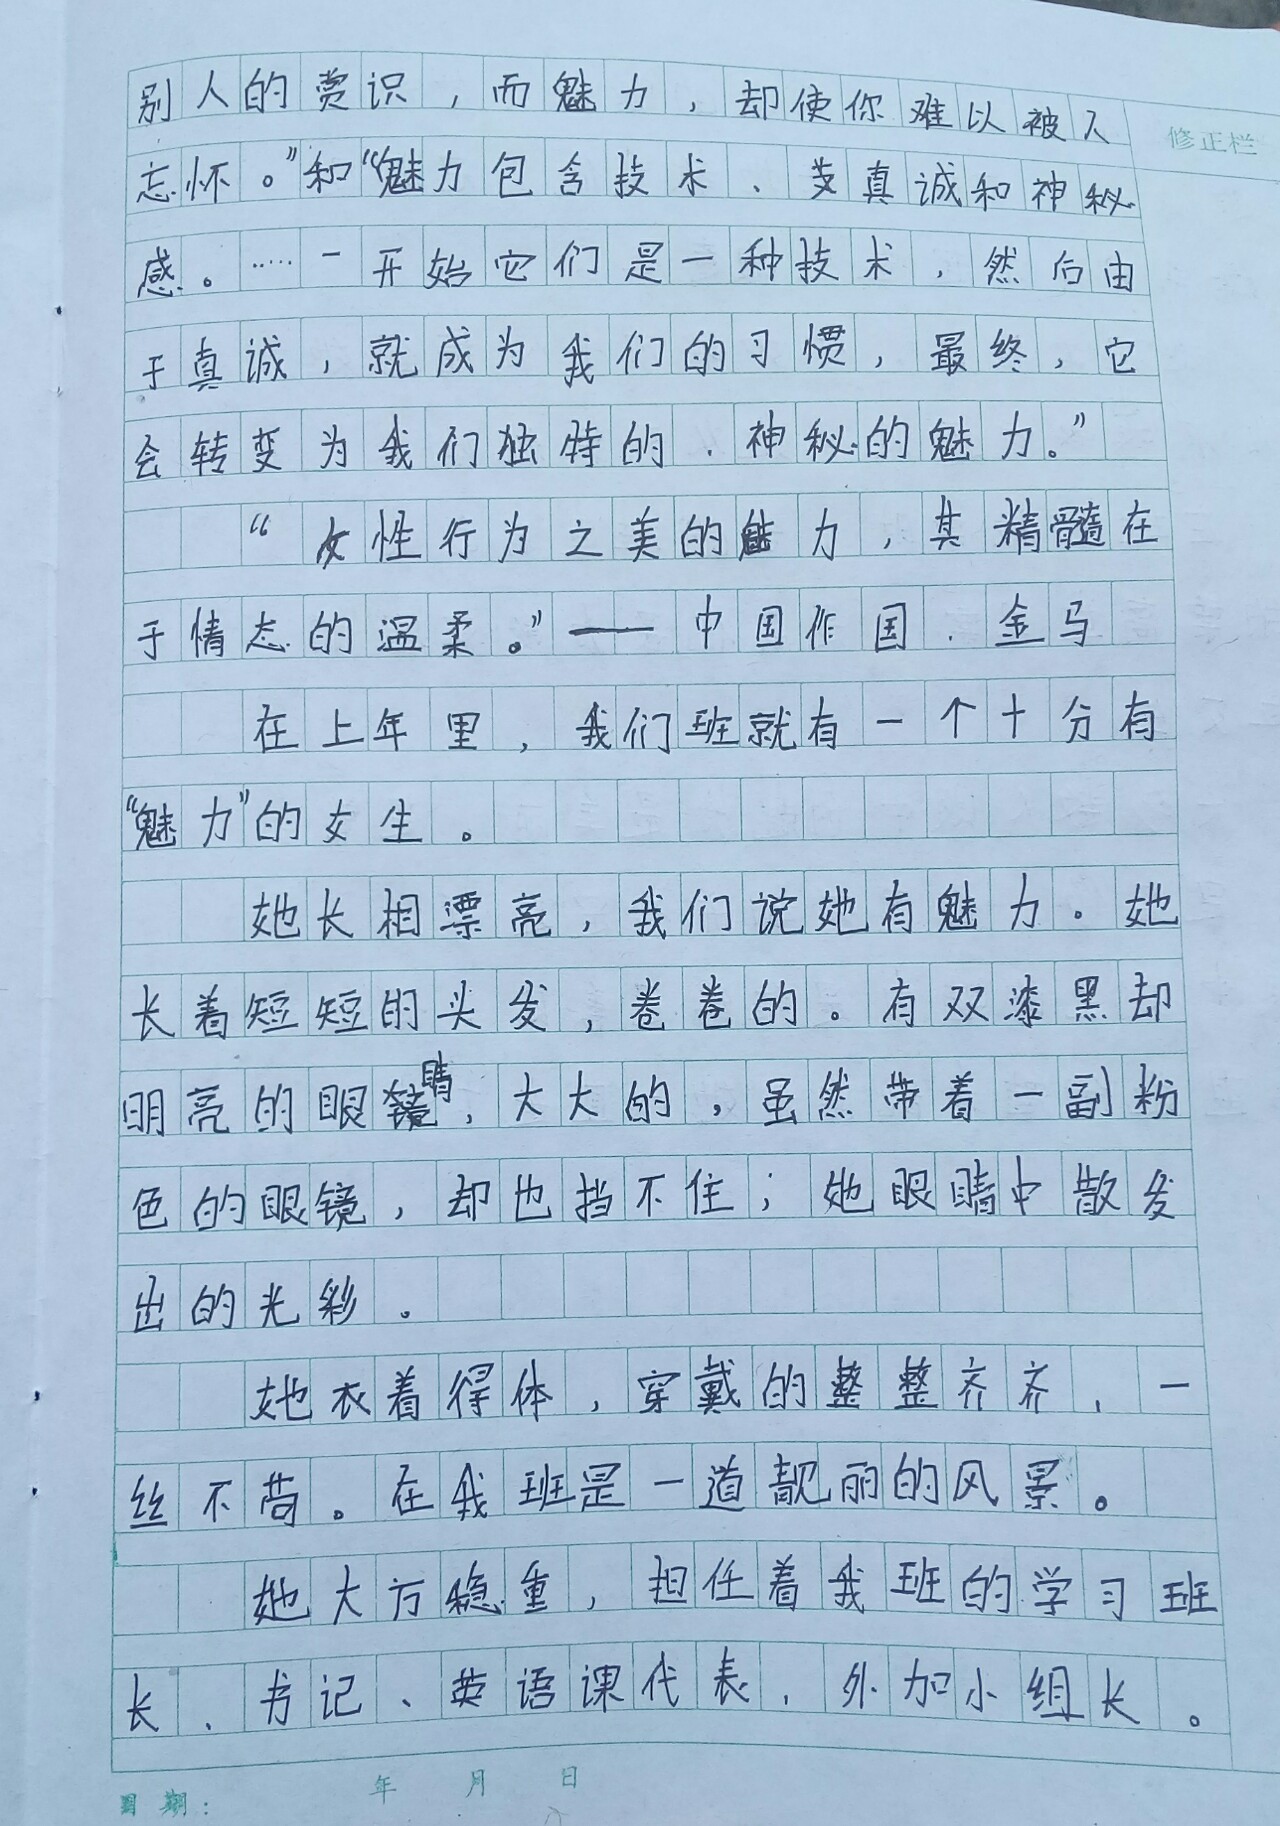 别人的赏识，而魅力，却使你难以被人
修正栏
忘怀。”和“魅力包含技术、真诚和神秘
感。……一开始它们是一种技术，然后由
于真诚，就成为我们的习惯，最终，它
会转变为我们独特的、神秘的魅力。”
“女性行为之美的魅力，其精髓在
于情态的温柔。”——中国作国．金马
在上年里，我们班就有一个十分有
“魅力”的女生。
她长相漂亮，我们说她有魅力。她
长着短短的头发，卷卷的。有双漆黑却
明亮的眼睛，大大的，虽然带着一副粉
色的眼镜，却也挡不住；她眼睛中散发
出的光彩。
她衣着得体，穿戴的整整齐齐，一
丝不苟。在我班是一道靓丽的风景。
她大方稳重，担任着我班的学习班
长、书记、英语课代表，外加小组长。
日期： 年 月 日